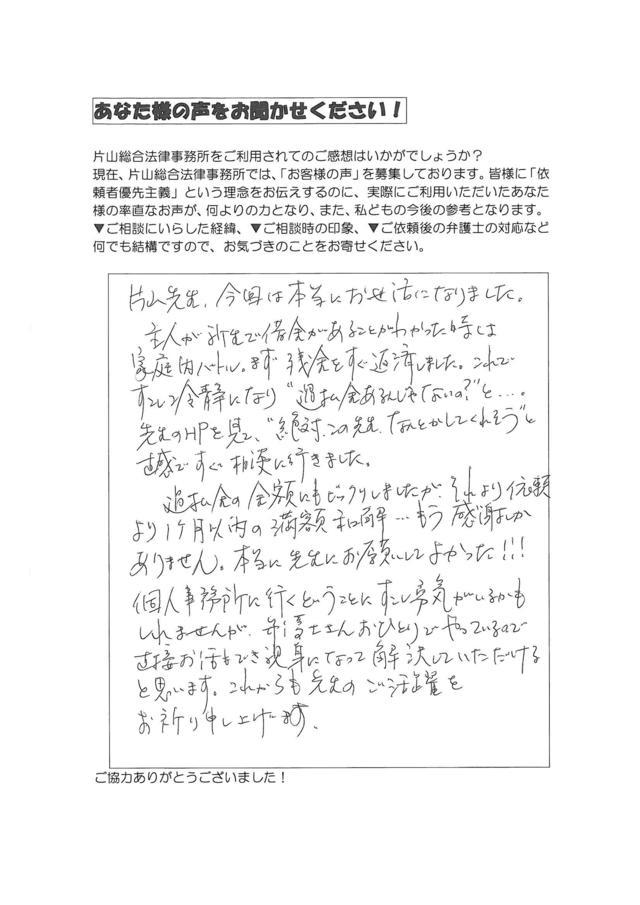 あなた様の声をお聞かせください！
片山総合法律事務所をご利用されてのご感想はいかがでしょうか？
現在、片山総合法律事務所では、「お客様の声」を募集しております。皆様に「依
頼者優先主義」という理念をお伝えするのに、実際にご利用いただいたあなた
様の率直なお声が、何よりの力となり、また、私どもの今後の参考となります。
▼ご相談にいらした経緯、▼ご相談時の印象、▼ご依頼後の弁護士の対応など
何でも結構ですので、お気づきのことをお寄せください。
片山先生、今回は本当にお世話になりました。
主人が内緒で借金があることがわかった時は
家庭内バトル。まず残金をすぐ返済しました。これで
すこし冷静になり"過払金あるんじゃないの？"と…。
先生のHPを見て、"絶対、この先生、なんとかしてくれそう"と
直感ですぐ相談に行きました。
過払金の金額にもビックリしましたが、それより依頼
より1ヶ月以内の満額和解…もう感謝しか
ありません。本当に先生にお願いしてよかった!!!
個人事務所に行くということにすこし勇気がいるかも
しれませんが、弁護士さんおひとりでやっているので
直接お話もでき親身になって解決していただける
と思います。これからも先生のご活躍を
お祈り申し上げます。
ご協力ありがとうございました！